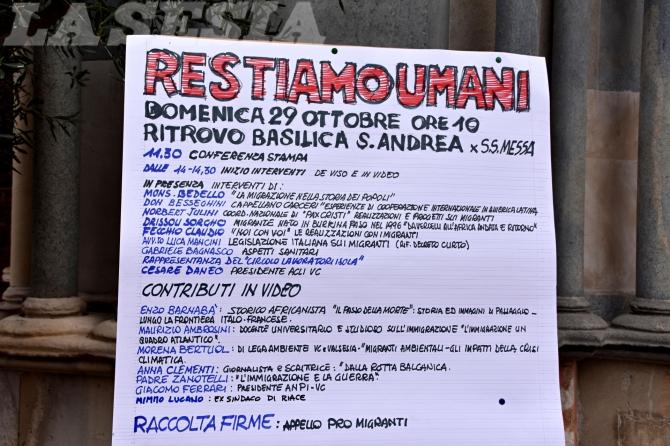 LA SESIA
RESTIAMO UMANI
DOMENICA 29 OTTOBRE ORE 10
RITROVO BASILICA S. ANDREA x S.S. MESSA
11,30 CONFERENZA STAMPA
DALLE 14-14,30 INIZIO INTERVENTI DE VISO E IN VIDEO
IN PRESENZA INTERVENTI DI:
MONS. BEDELLO "LA MIGRAZIONE NELLA STORIA DEI POPOLI"
DON BESSEGHINI CAPPELLANO CARCERI "ESPERIENZE DI COOPERAZIONE INTERNAZIONALE IN AMERICA LATINA
NORBERT JULINI COORD. NAZIONALE DI "PAX CRISTI" REALIZZAZIONI E PROGETTI SUI MIGRANTI
DRISSOU SORGHO MIGRANTE NATO IN BURKINA FASO NEL 1996 "DA VERCELLI ALL'AFRICA ANDATA E RITORNO"
FECCHIO CLAUDIO "NOI CON VOI" LE REALIZZAZIONI CON I MIGRANTI
AVV.TO LUCA MANCINI LEGISLAZIONE ITALIANA SUI MIGRANTI (RIF. DECRETO CURTO)
GABRIELE BAGNASCO ASPETTI SANITARI
RAPPRESENTANZA DEL "CIRCOLO LAVORATORI ISOLA"
CESARE DANEO PRESIDENTE ACLI VC
CONTRIBUTI IN VIDEO
ENZO BARNABA': STORICO AFRICANISTA "IL PASSO DELLA MORTE": STORIA ED IMMAGINI DI PASSAGGIO -
LUNGO LA FRONTIERA ITALO-FRANCESE.
MAURIZIO AMBROSINI: DOCENTE UNIVERSITARIO E STUDIOSO SULL'IMMIGRAZIONE "L'IMMIGRAZIONE UN
QUADRO ATLANTICO".
MORENA BERTUOL: DI LEGAMBIENTE VC E VALSESIA - "MIGRANTI AMBIENTALI - GLI IMPATTI DELLA CRISI
CLIMATICA.
ANNA CLEMENTI: GIORNALISTA E SCRITTRICE: "DALLA ROTTA BALCANICA.
PADRE ZANOTELLI: "L'IMMIGRAZIONE E LA GUERRA".
GIACOMO FERRARI: PRESIDENTE ANPI-VC
MIMMO LUCANO: EX SINDACO DI RIACE
RACCOLTA FIRME: APPELLO PRO MIGRANTI